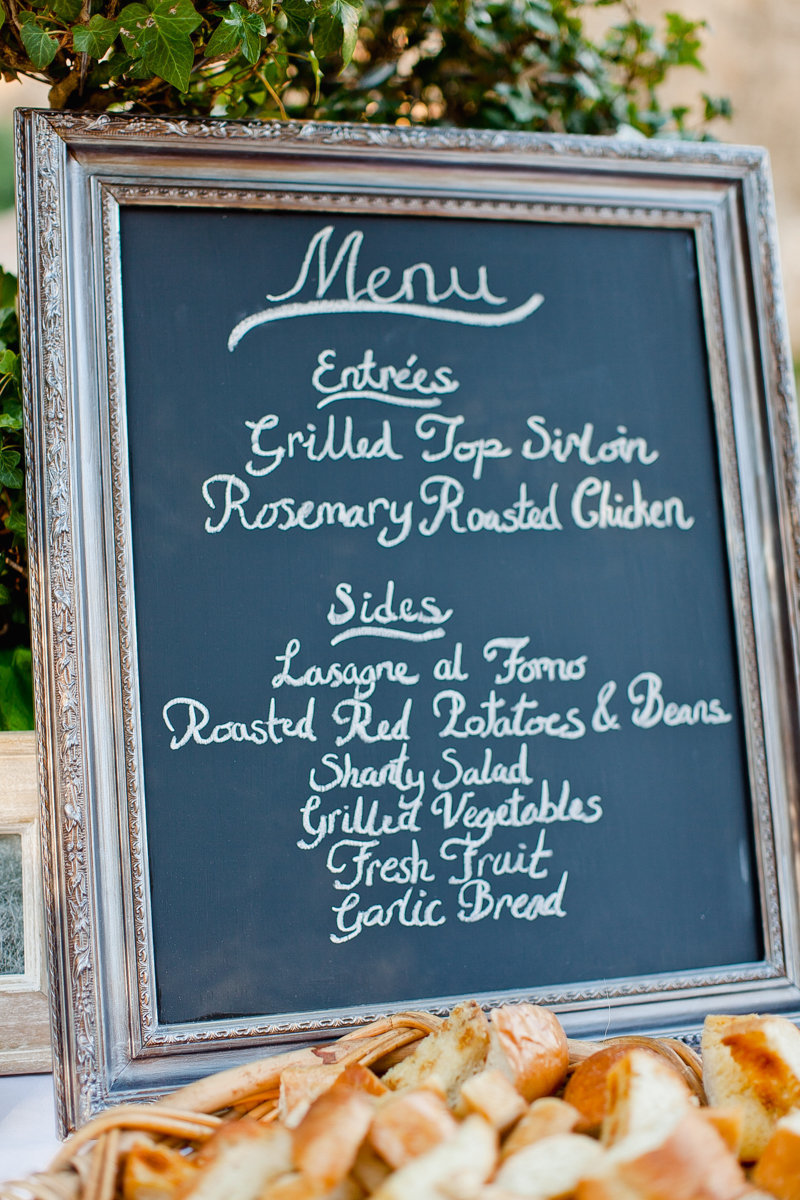 Menu
Entrées
Grilled Top Sirloin
Rosemary Roasted Chicken
Sides
Lasagne al Forno
Roasted Red Potatoes & Beans
Shanty Salad
Grilled Vegetables
Fresh Fruit
Garlic Bread